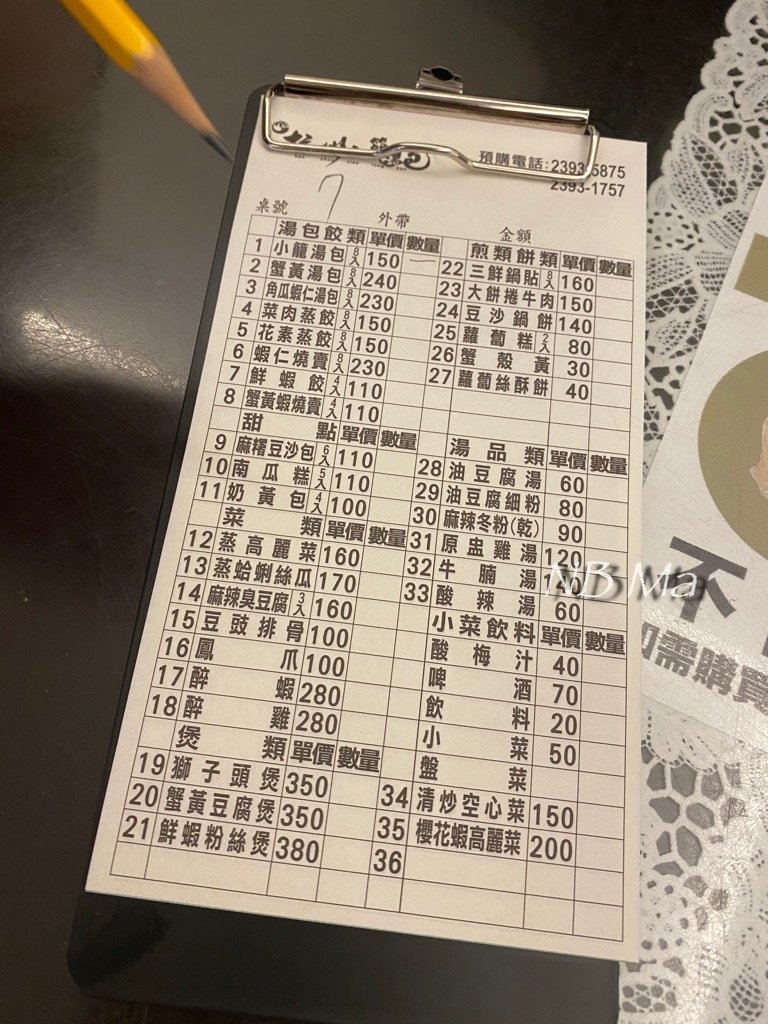 預購電話:2393-5875
2393-1757
桌號 7 外帶 金額
湯包餃類 單價 數量
1 小龍湯包 8入 150 一
2 蟹黃湯包 8入 240
3 角瓜蝦仁湯包 8入 230
4 菜肉蒸餃 8入 150
5 花素蒸餃 8入 150
6 蝦仁燒賣 8入 230
7 鮮蝦餃 4入 110
8 蟹黃蝦燒賣 4入 110
甜點 單價 數量
9 麻糬豆沙包 6入 110
10 南瓜糕 5入 110
11 奶黃包 4入 100
菜類 單價 數量
12 蒸高麗菜 160
13 蒸蛤蜊絲瓜 170
14 麻辣臭豆腐 3入 160
15 豆豉排骨 100
16 鳳爪 100
17 醉蝦 280
18 醉雞 280
煲類 單價 數量
19 獅子頭煲 350
20 蟹黃豆腐煲 350
21 鮮蝦粉絲煲 380
煎類餅類 單價 數量
22 三鮮鍋貼 8入 160
23 大餅捲牛肉 150
24 豆沙鍋餅 140
25 蘿蔔糕 2入 80
26 蟹殼黃 30
27 蘿蔔絲酥餅 40
湯品類 單價 數量
28 油豆腐湯 60
29 油豆腐細粉 80
30 麻辣冬粉(乾) 90
31 原盅雞湯 120
32 牛腩湯
33 酸辣湯 60
小菜飲料 單價 數量
酸梅汁 40
啤酒 70
飲料 20
小菜 50
盤菜
34 清炒空心菜 150
35 櫻花蝦高麗菜 200
36
NB Ma
不
如需購買